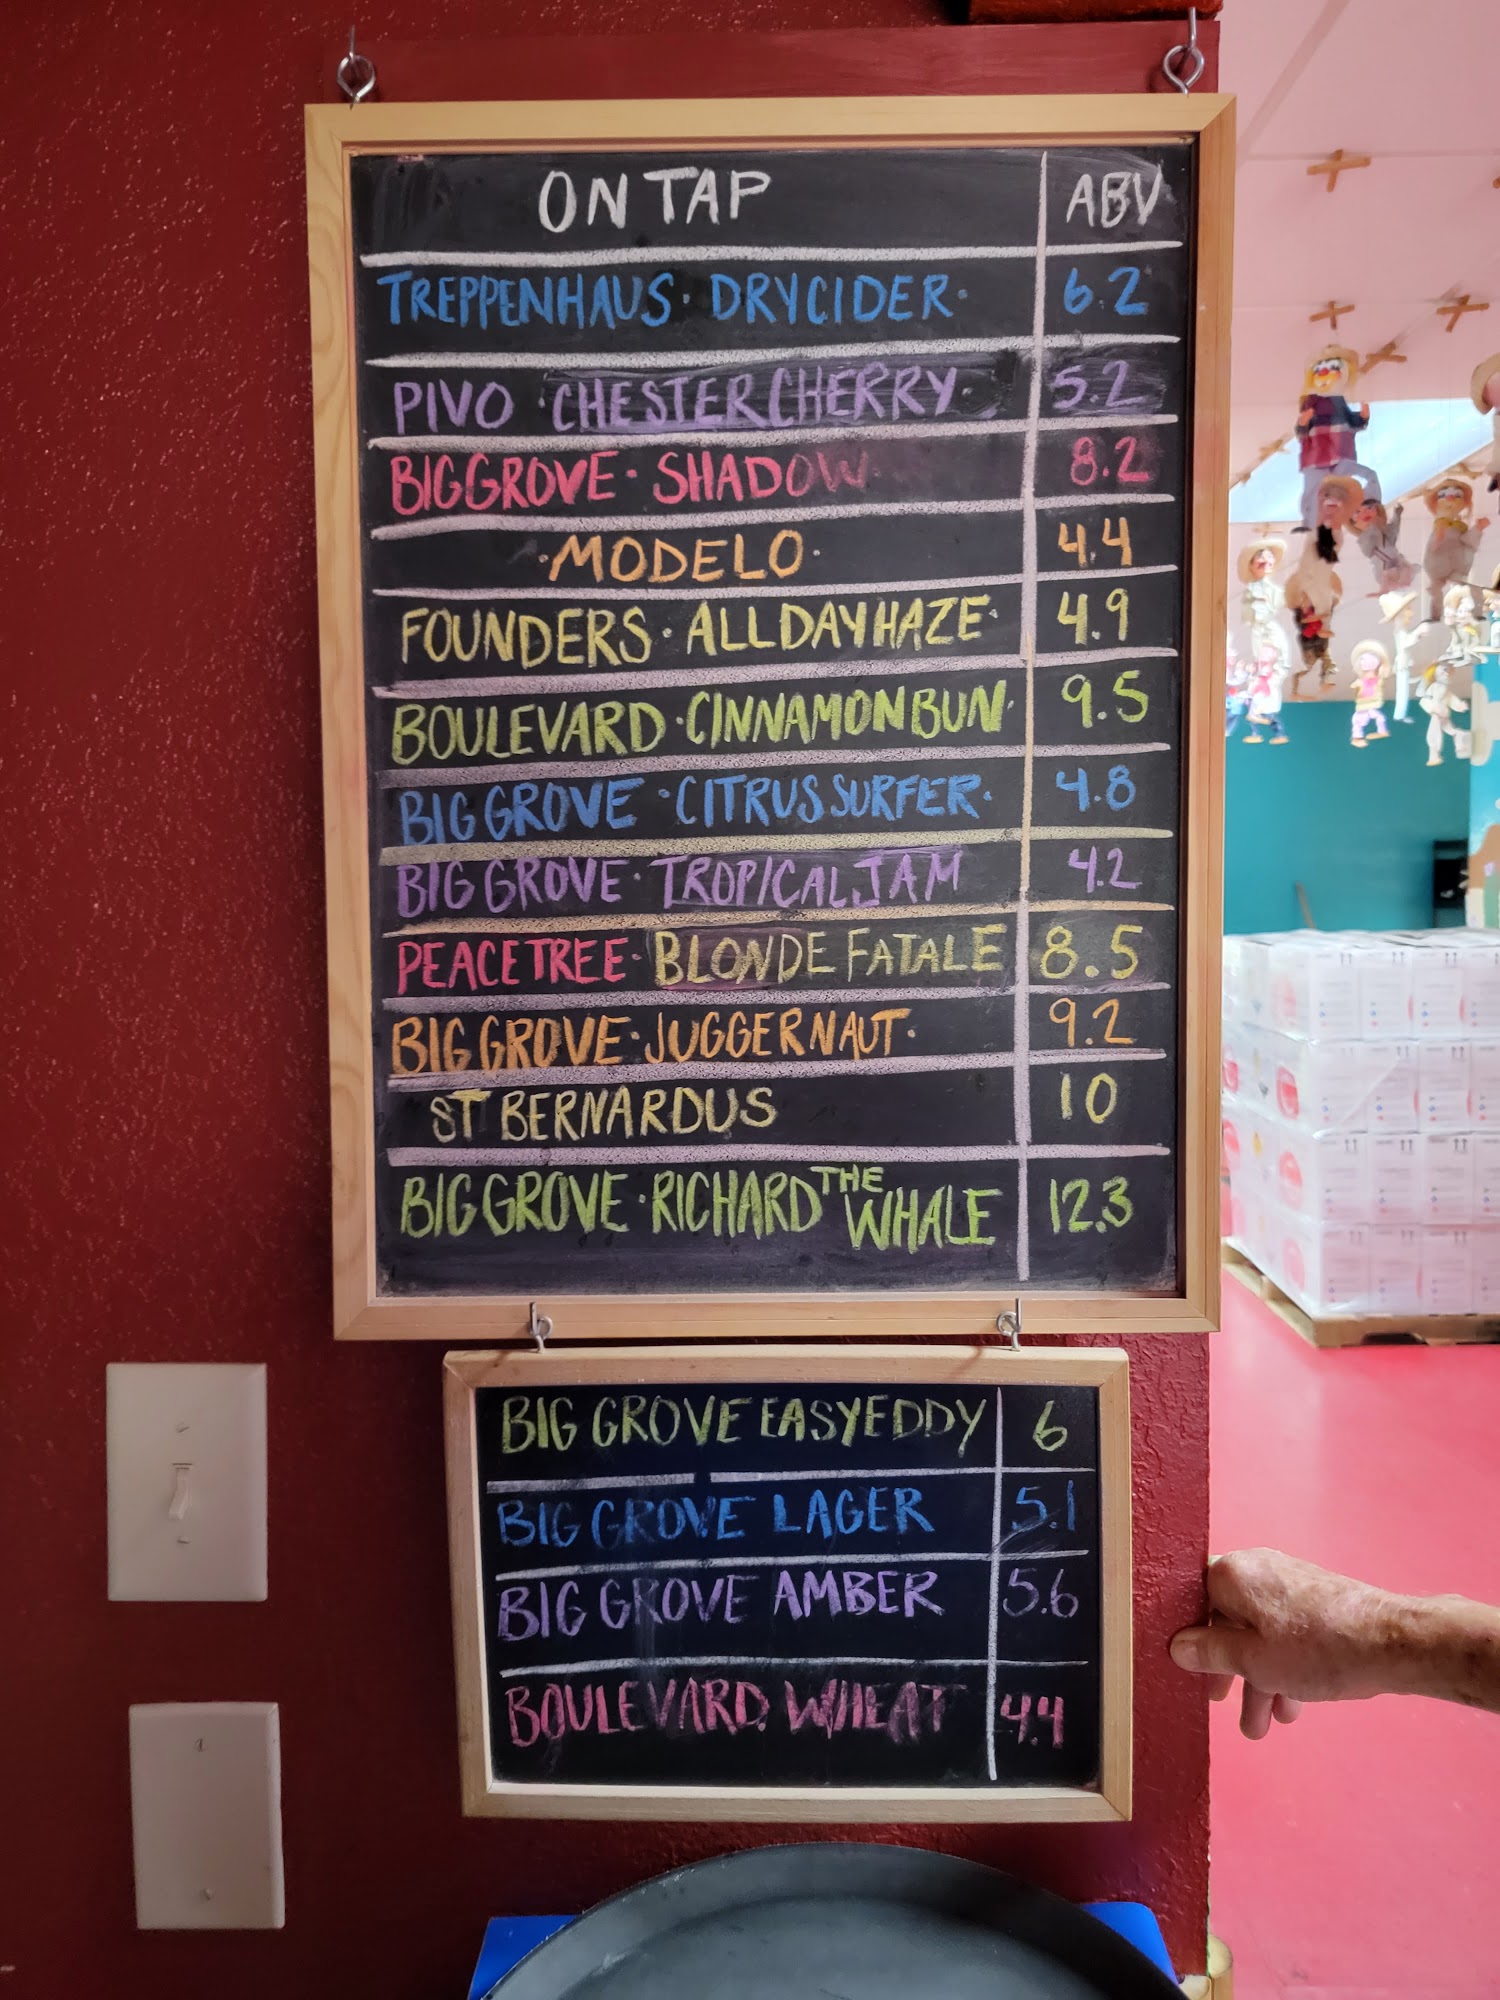 ON TAP ABV
TREPPENHAUS · DRY CIDER · 6.2
PIVO · CHESTER CHERRY · 5.2
BIG GROVE · SHADOW 8.2
· MODELO · 4.4
FOUNDERS · ALL DAY HAZE · 4.9
BOULEVARD · CINNAMON BUN · 9.5
BIG GROVE · CITRUS SURFER · 4.8
BIG GROVE · TROPICAL JAM 4.2
PEACE TREE · BLONDE FATALE 8.5
BIG GROVE · JUGGERNAUT · 9.2
ST BERNARDUS 10
BIG GROVE · RICHARD THE WHALE 12.3
BIG GROVE EASY EDDY 6
BIG GROVE LAGER 5.1
BIG GROVE AMBER 5.6
BOULEVARD WHEAT 4.4